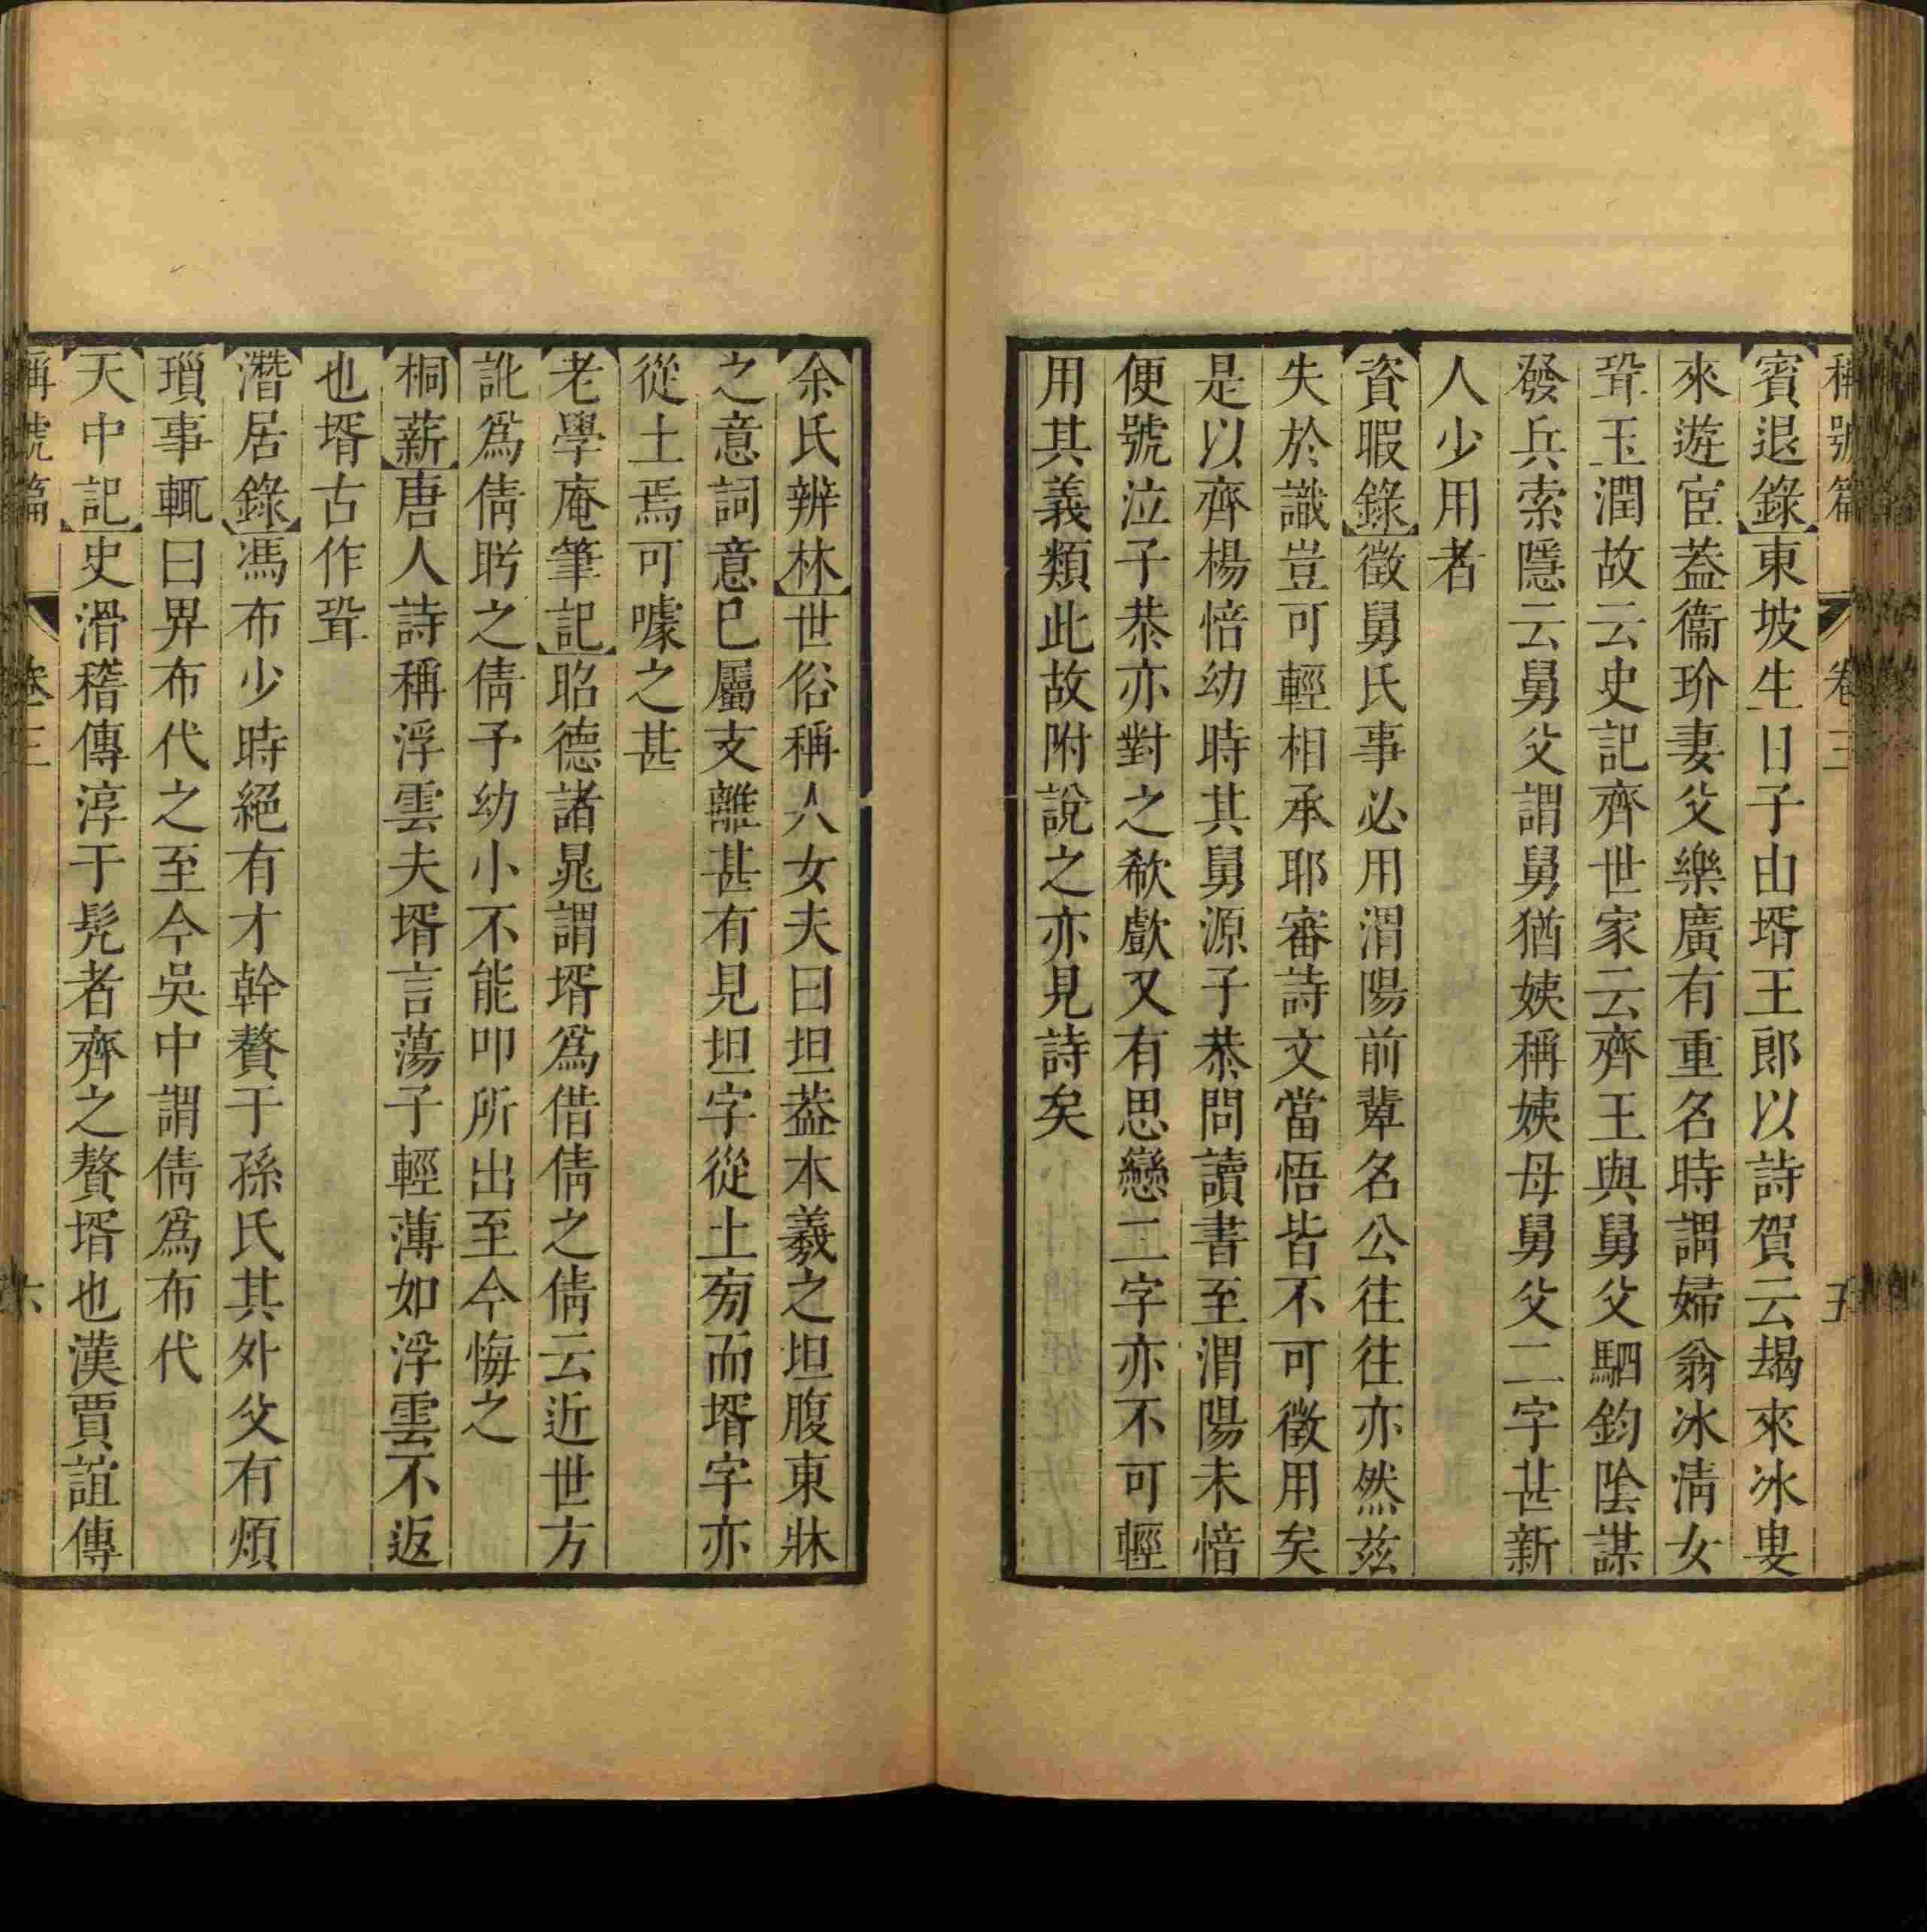 稱號篇 卷三 五
賓退錄東坡生日子由壻王郎以詩賀云朅來冰叟
來遊宦葢衞玠妻父樂廣有重名時謂婦翁冰淸女
壻玉潤故云史記齊世家云齊王與舅父駟鈞陰謀
發兵索隱云舅父謂舅猶姨稱姨母舅父二字甚新
人少用者
資暇錄徵舅氏事必用渭陽前輩名公往往亦然茲
失於識豈可輕相承耶審詩文當悟皆不可徵用矣
是以齊楊愔幼時其舅源子恭問讀書至渭陽未愔
便號泣子恭亦對之欷歔又有思戀二字亦不可輕
用其義類此故附說之亦見詩矣
余氏辨林世俗稱人女夫曰坦葢本羲之坦腹東牀
之意詞意已屬支離甚有見坦字從土菊而壻字亦
從土焉可噱之甚
老學庵筆記昭德諸晁謂壻爲借倩之倩云近世方
訛爲倩盻之倩予幼小不能叩所出至今悔之
桐薪唐人詩稱浮雲夫壻言蕩子輕薄如浮雲不返
也壻古作聟
潛居錄馮布少時絕有才幹贅于孫氏其外父有煩
瑣事輒曰畀布代之至今吳中謂倩爲布代
天中記史滑稽傳淳于髡者齊之贅壻也漢賈誼傳
稱號篇 卷三 六